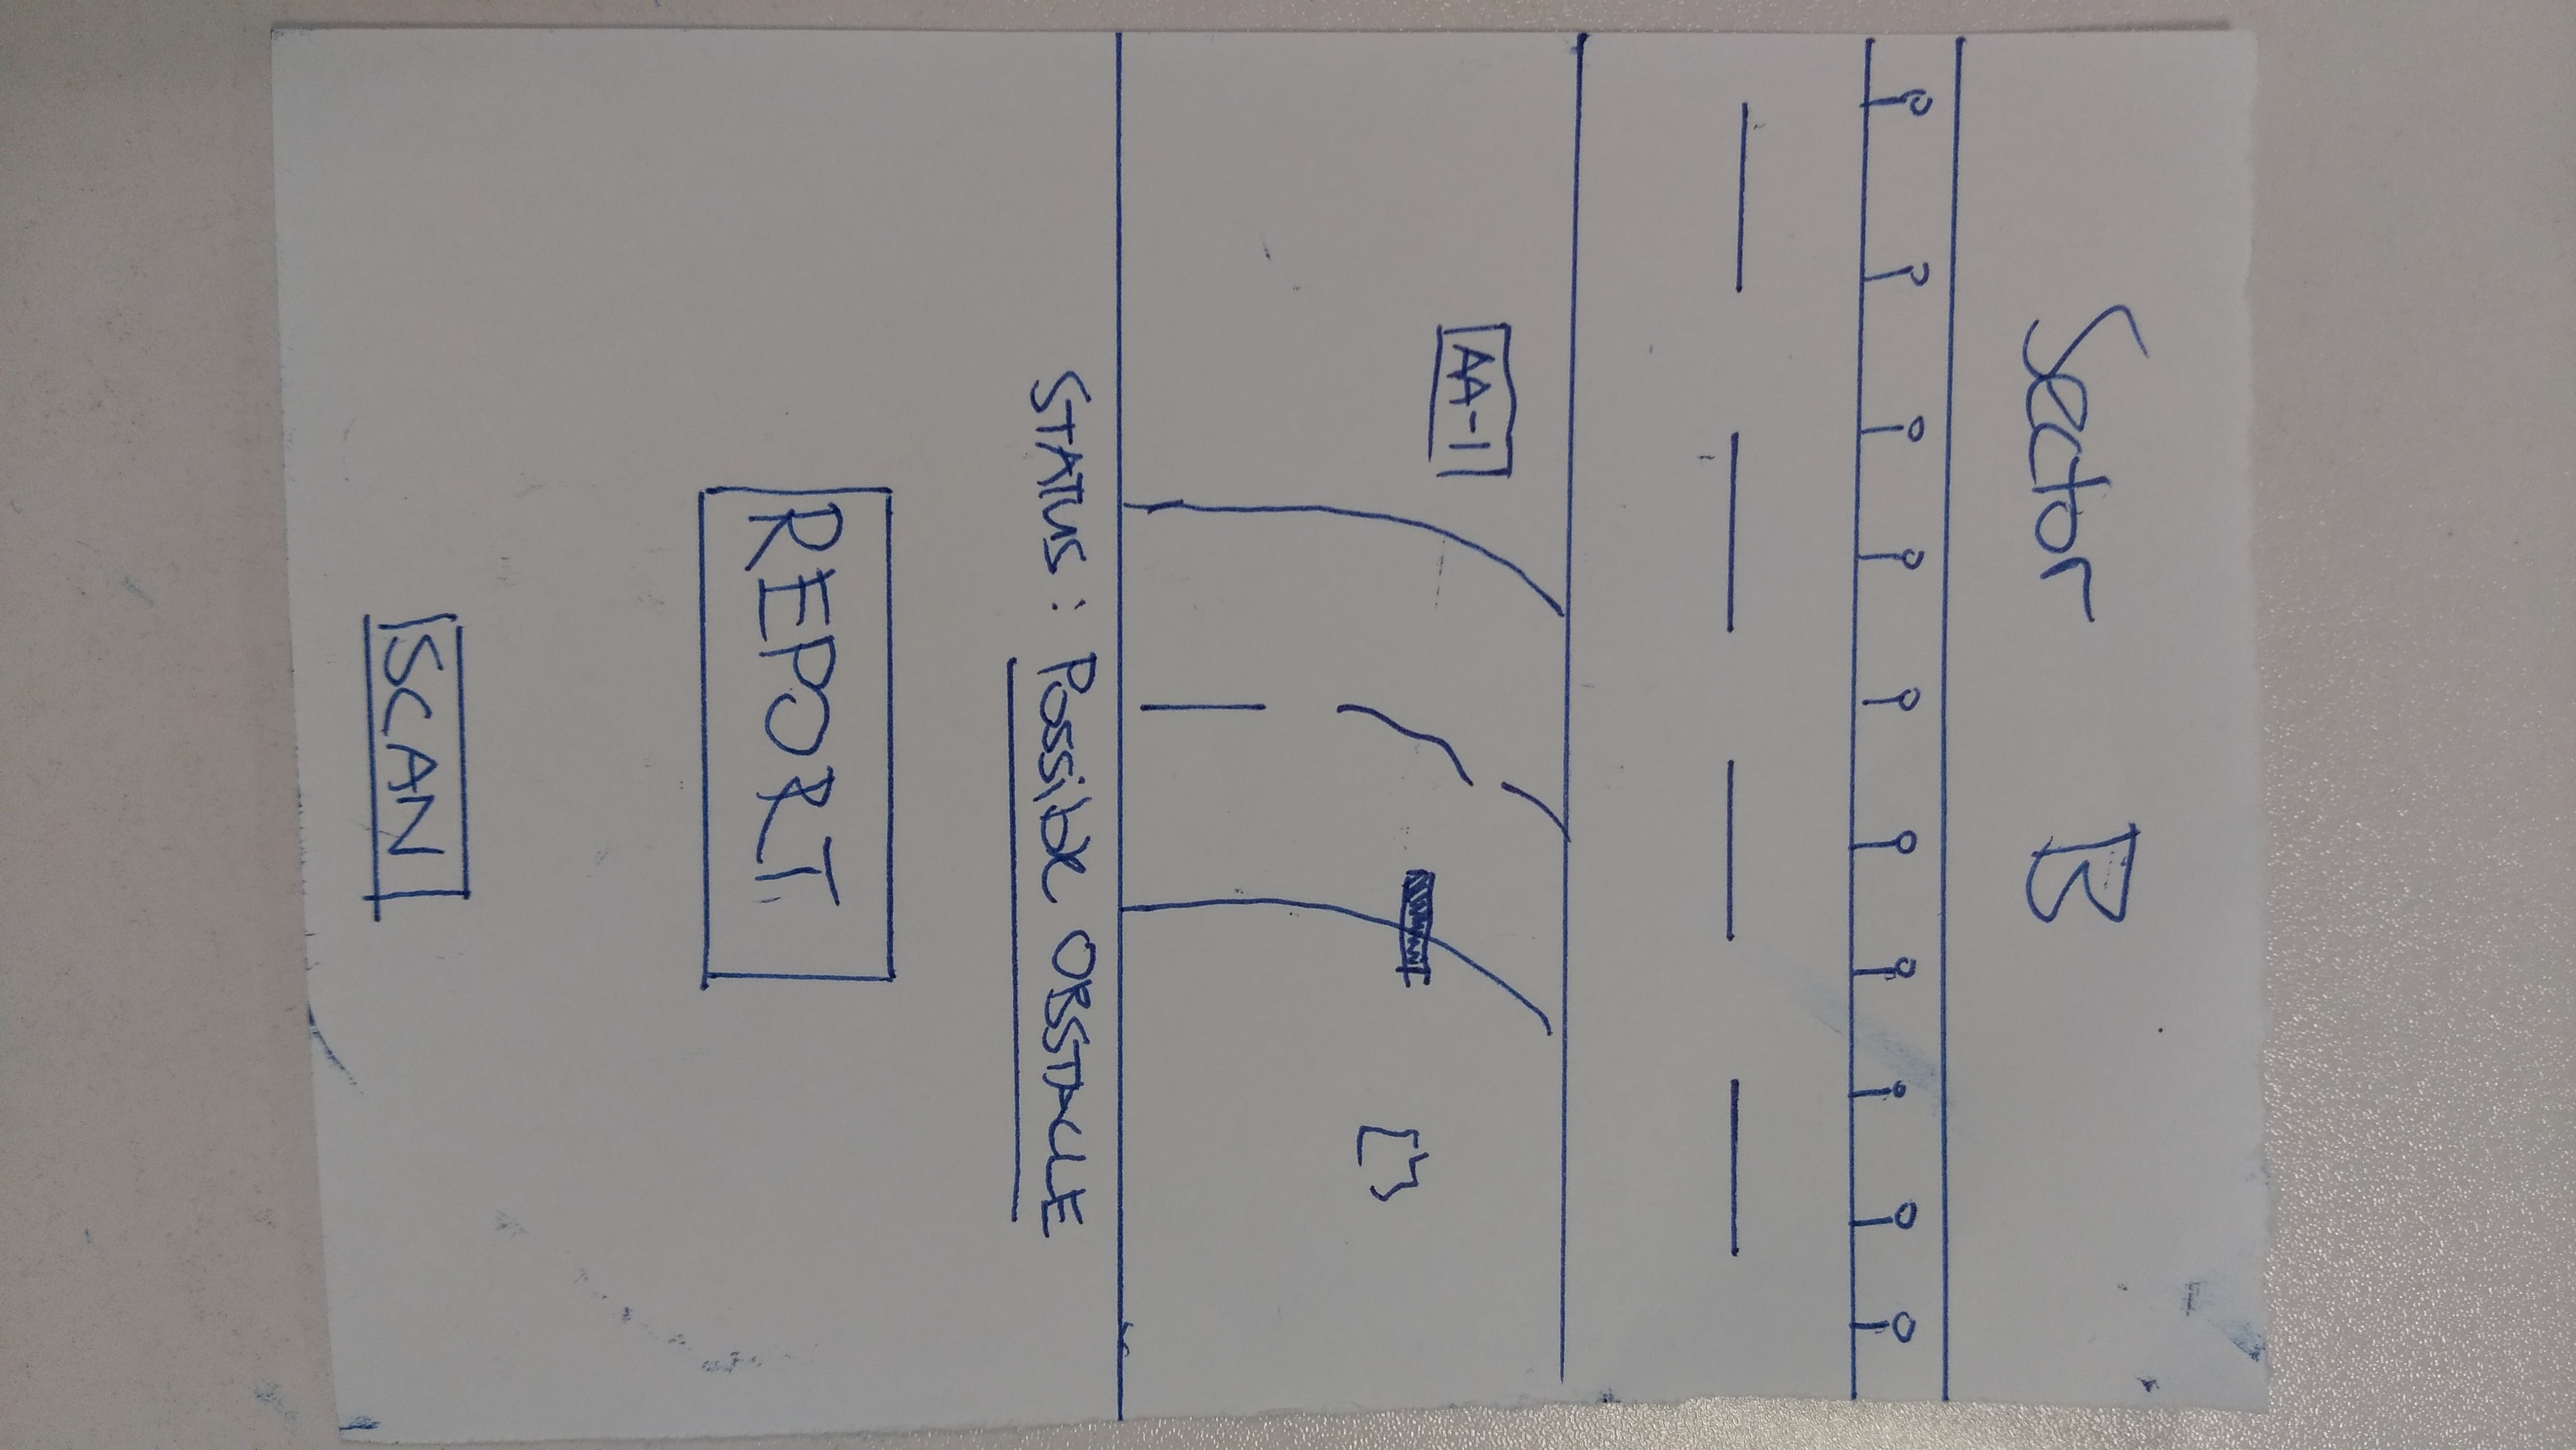 Sector B
AA-1
STATUS: Possible OBSTACLE
REPORT
SCAN